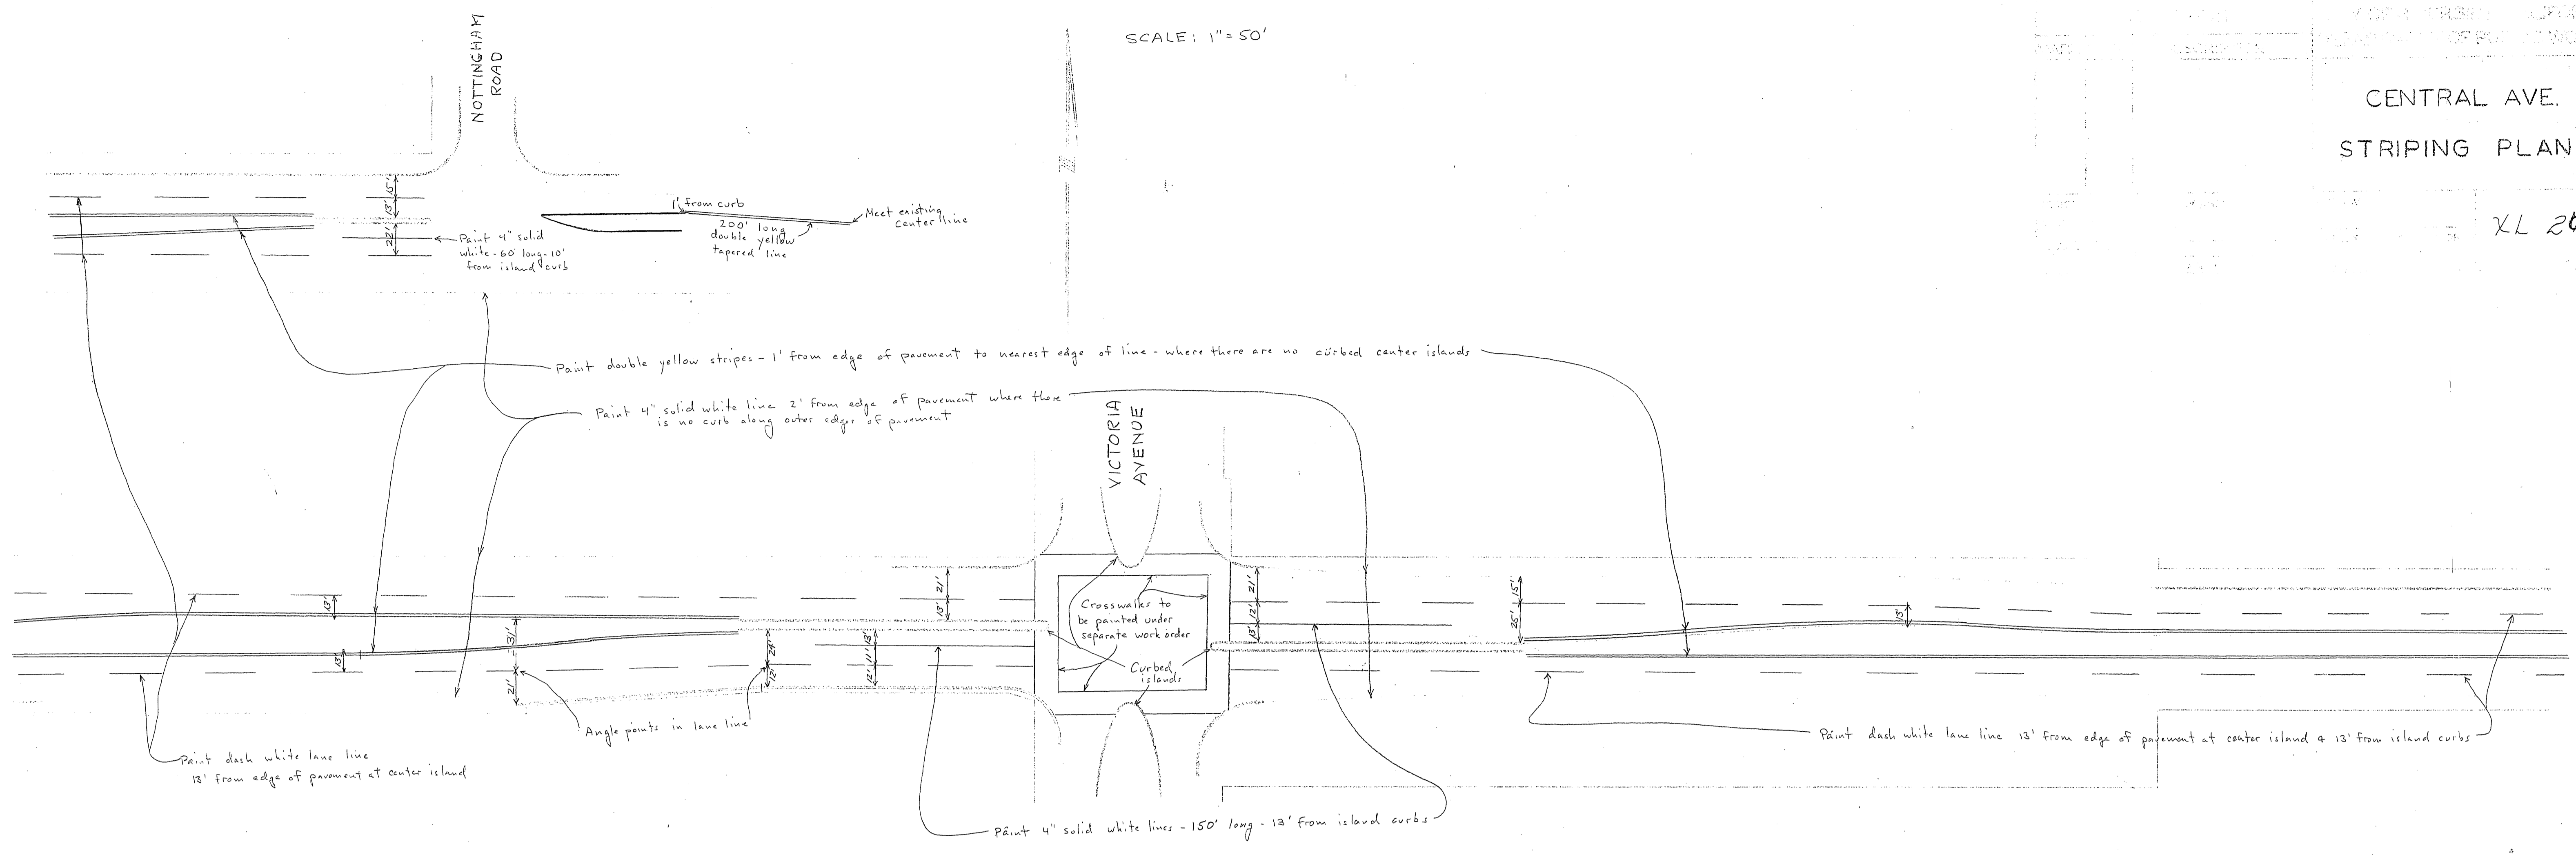 SCALE: 1" = 50'
CENTRAL AVE.
STRIPING PLAN
XL 2
NOTTINGHAM
ROAD
15'
13'
22'
1' from curb
200' long
double yellow
tapered line
Meet existing
center line
Paint 4" solid
white - 60' long - 10'
from island curb
Paint double yellow stripes - 1' from edge of pavement to nearest edge of line - where there are no curbed center islands
Paint 4" solid white line 2' from edge of pavement where there
is no curb along outer edges of pavement
VICTORIA
AVENUE
13'
13'
31'
21'
24'
12'
21'
13'
13'
11'
12'
Crosswalks to
be painted under
separate work order
Curbed
islands
21'
12'
13'
15'
25'
13'
Angle points in lane line
Paint dash white lane line
13' from edge of pavement at center island
Paint dash white lane line 13' from edge of pavement at center island & 13' from island curbs
Paint 4" solid white lines - 150' long - 13' from island curbs